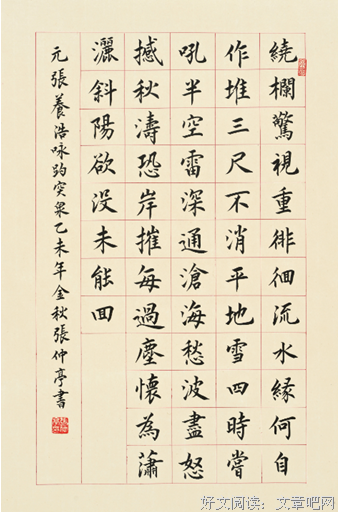 繞欄驚視重徘徊流水緣何自
作堆三尺不消平地雪四時嘗
吼半空雷深通滄海愁波盡怒
撼秋濤恐岸摧每過塵懷為瀟
灑斜陽欲没未能回
元張養浩咏趵突泉乙未年金秋張仲亭書
好文阅读：文章吧网